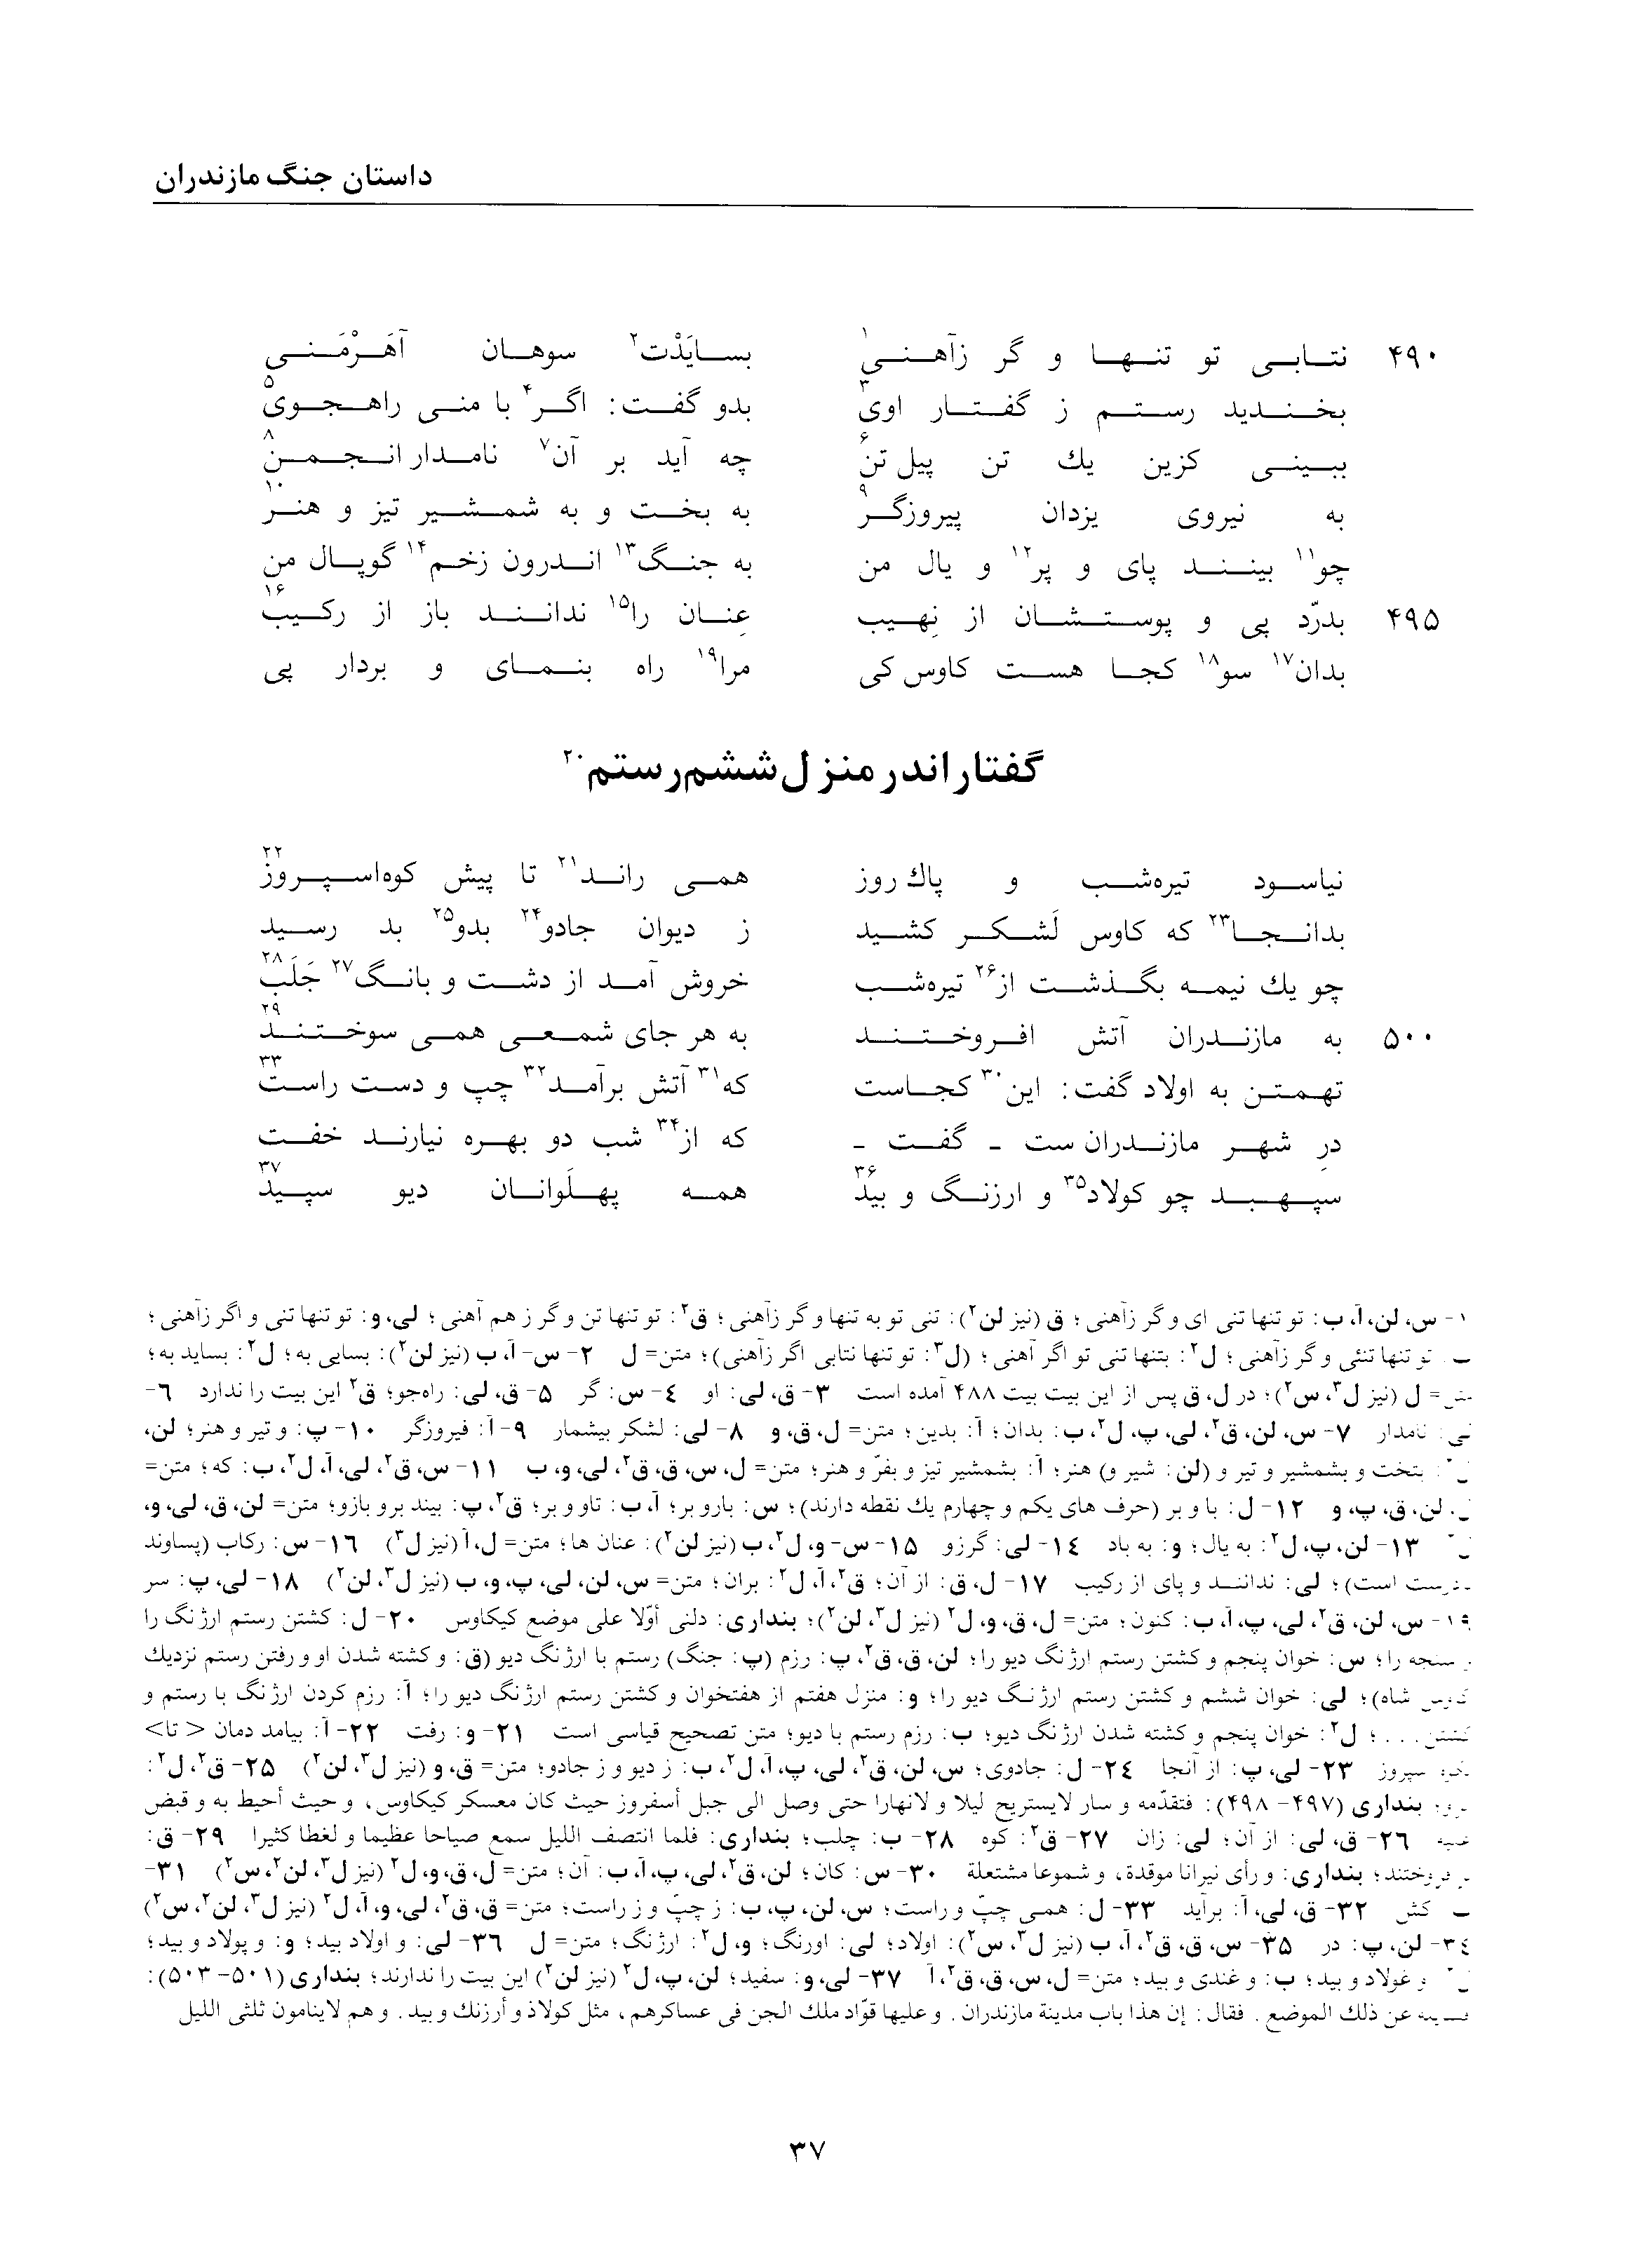 داستان جنگ مازندران
۴۹۰ نتابی تو تنها و گر زآهنی۱ بسایَدْت۲ سوهان آهَرْمَنی
بخندید رستم ز گفتار اوی۳ بدو گفت: اگر۴ با منی راهجوی۵
ببینی کزین یك تن پیل تن۶ چه آید بر آن۷ نامدار انجمن۸
به نیروی یزدان پیروزگر۹ به بخت و به شمشیر تیز و هنر۱۰
چو۱۱ بینند پای و پر۱۲ و یال من به جنگ۱۳ اندرون زخم۱۴ گوپال من
۴۹۵ بدرّد پی و پوستشان از نِهیب عِنان را۱۵ ندانند باز از رکیب۱۶
بدان۱۷ سو۱۸ کجا هست کاوس کی مرا۱۹ راه بنمای و بردار پی
گفتار اندر منزل ششم رستم۲۰
نیاسود تیره‌شب و پاك روز همی راند۲۱ تا پیش کوه‌اسپروز۲۲
بدانجا۲۳ که کاوس لَشکر کشید ز دیوان جادو۲۴ بدو۲۵ بد رسید
چو یك نیمه بگذشت از۲۶ تیره‌شب خروش آمد از دشت و بانگ۲۷ جَلَب۲۸
۵۰۰ به مازندران آتش افروختند به هر جای شمعی همی سوختند۲۹
تهمتن به اولاد گفت: این۳۰ کجاست که۳۱ آتش برآمد۳۲ چپ و دست راست۳۳
درِ شهر مازندران ست - گفت - که از۳۴ شب دو بهره نیارند خفت
سپهبد چو کولاد۳۵ و ارزنگ و بید۳۶ همه پهلَوانان دیو سپید۳۷
۱- س، لن، آ، ب: تو تنها تنی ای و گر زآهنی؛ ق (نیز لن۲): تنی تو به تنها و گر زآهنی؛ ق۲: تو تنها تن و گر ز هم آهنی؛ لی، و: تو تنها تنی و اگر زآهنی؛
تو تنها تنئی و گر زآهنی؛ ل۲: بتنها تنی تو اگر آهنی؛ (ل۳: تو تنها نتابی اگر زآهنی)؛ متن= ل ۲- س- آ، ب (نیز لن۲): بسایی به؛ ل۲: بساید به؛
= ل (نیز ل۳، س۲)؛ در ل، ق پس از این بیت بیت ۴۸۸ آمده است ۳- ق، لی: او ۴- س: گر ۵- ق، لی: راه‌جو؛ ق۲ این بیت را ندارد ۶-
نامدار ۷- س، لن، ق۲، لی، پ، ل۲، ب: بدان؛ آ: بدین؛ متن= ل، ق، و ۸- لی: لشکر بیشمار ۹- آ: فیروزگر ۱۰- پ: و تیر و هنر؛ لن،
: بتخت و بشمشیر و تیر و (لن: شیر و) هنر؛ آ: بشمشیر تیز و بفرّ و هنر؛ متن= ل، س، ق، ق۲، لی، و، ب ۱۱- س، ق۲، لی، آ، ل۲، ب: که؛ متن=
لن، ق، پ، و ۱۲- ل: با و بر (حرف های یکم و چهارم یك نقطه دارند)؛ س: بازو بر؛ آ، ب: تاو و بر؛ ق۲، پ: بیند برو بازو؛ متن= لن، ق، لی، و،
۱۳- لن، پ، ل۲: به یال؛ و: به باد ۱۴- لی: گرزو ۱۵- س- و، ل۲، ب (نیز لن۲): عنان ها؛ متن= ل، آ (نیز ل۳) ۱۶- س: رکاب (پساوند
است)؛ لی: نداننـد و پای از رکیب ۱۷- ل، ق: از آن؛ ق۲، آ، ل۲: بران؛ متن= س، لن، لی، پ، و، ب (نیز ل۳، لن۲) ۱۸- لی، پ: سر
۱۹- س، لن، ق۲، لی، پ، آ، ب: کنون؛ متن= ل، ق، و، ل۲ (نیز ل۳، لن۲)؛ بنداری: دلنی أوّلا علی موضع کیکاوس ۲۰- ل: کشتن رستم ارژنگ را
سنجه را؛ س: خوان پنجم و کشتن رستم ارژنگ دیو را؛ لن، ق، ق۲، پ: رزم (پ: جنگ) رستم با ارژنگ دیو (ق: و کشته شدن او و رفتن رستم نزدیك
شاه)؛ لی: خوان ششم و کشتن رستم ارژنگ دیو را؛ و: منزل هفتم از هفتخوان و کشتن رستم ارژنگ دیو را؛ آ: رزم کردن ارژنگ با رستم و
. . . ؛ ل۲: خوان پنجم و کشته شدن ارژنگ دیو؛ ب: رزم رستم با دیو؛ متن تصحیح قیاسی است ۲۱- و: رفت ۲۲- آ: بیامد دمان <تا>
سپروز ۲۳- لی، پ: از آنجا ۲۴- ل: جادوی؛ س، لن، ق۲، لی، پ، آ، ل۲، ب: ز دیو و ز جادو؛ متن= ق، و (نیز ل۳، لن۲) ۲۵- ق۲، ل۲:
بنداری (۴۹۷- ۴۹۸): فتقدّمه و سار لایستریح لیلا و لانهارا حتی وصل الی جبل أسفروز حیث کان معسکر کیکاوس، و حیث أحیط به و قبض
۲۶- ق، لی: از آن؛ لی: زان ۲۷- ق۲: کوه ۲۸- ب: چلب؛ بنداری: فلما انتصف اللیل سمع صیاحا عظیما و لغطا کثیرا ۲۹- ق:
بنداری: و رأی نیرانا موقدة، و شموعا مشتعلة ۳۰- س: کان؛ لن، ق۲، لی، پ، آ، ب: آن؛ متن= ل، ق، و، ل۲ (نیز ل۳، لن۲، س۲) ۳۱-
کش ۳۲- ق، لی، آ: برآید ۳۳- ل: همی چپّ و راست؛ س، لن، پ، ب: ز چپّ و ز راست؛ متن= ق، ق۲، لی، و، آ، ل۲ (نیز ل۳، لن۲، س۲)
۳۴- لن، پ: در ۳۵- س، ق، ق۲، آ، ب (نیز ل۳، س۲): اولاد؛ لی: اورنگ؛ و، ل۲: ارژنگ؛ متن= ل ۳۶- لی: و اولاد بید؛ و: و پولاد و بید؛
و غولاد و بید؛ ب: و غندی و بید؛ متن= ل، س، ق، ق۲، آ ۳۷- لی، و: سفید؛ لن، پ، ل۲ (نیز لن۲) این بیت را ندارند؛ بنداری (۵۰۱- ۵۰۳):
عن ذلك الموضع. فقال: إن هذا باب مدینة مازندران. و علیها قوّاد ملك الجن فی عساکرهم، مثل کولاذ و أرزنك و بید. و هم لاینامون ثلثی اللیل
۳۷